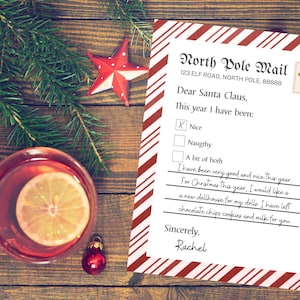 North Pole Mail
123 ELF ROAD, NORTH POLE, 88888
Dear Santa Claus,
This year I have been:
X Nice
Naughty
A bit of both
I have been very good and nice this year.
For Christmas this year, I would like a
a new dollhouse for my dolls. I have left
chocolate chips cookies and milk for you.
Sincerely,
Rachel